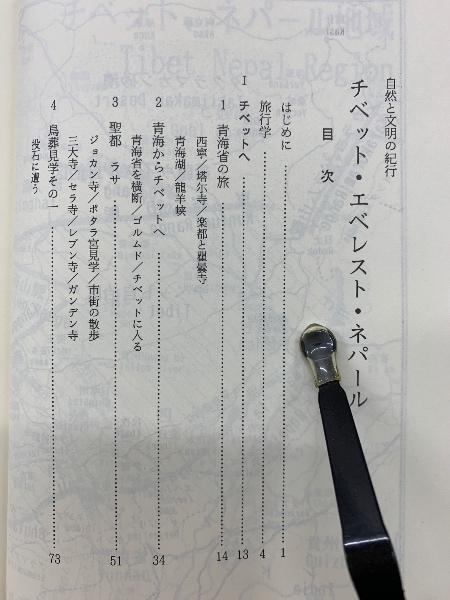 自然と文明の紀行
チベット・エベレスト・ネパール
目次
はじめに……1
旅行学……4
I チベットへ……13
1 青海省の旅……14
西寧／塔尓寺／楽都と瞿曇寺
青海湖／龍羊峡
2 青海からチベットへ……34
青海省を横断／ゴルムド／チベットに入る
3 聖都 ラサ……51
ジョカン寺／ポタラ宮見学／市街の散歩
三大寺／セラ寺／レブン寺／ガンデン寺
4 鳥葬見学その一……73
投石に遭う
チベット・ネパール地域
Tibet Nepal Region